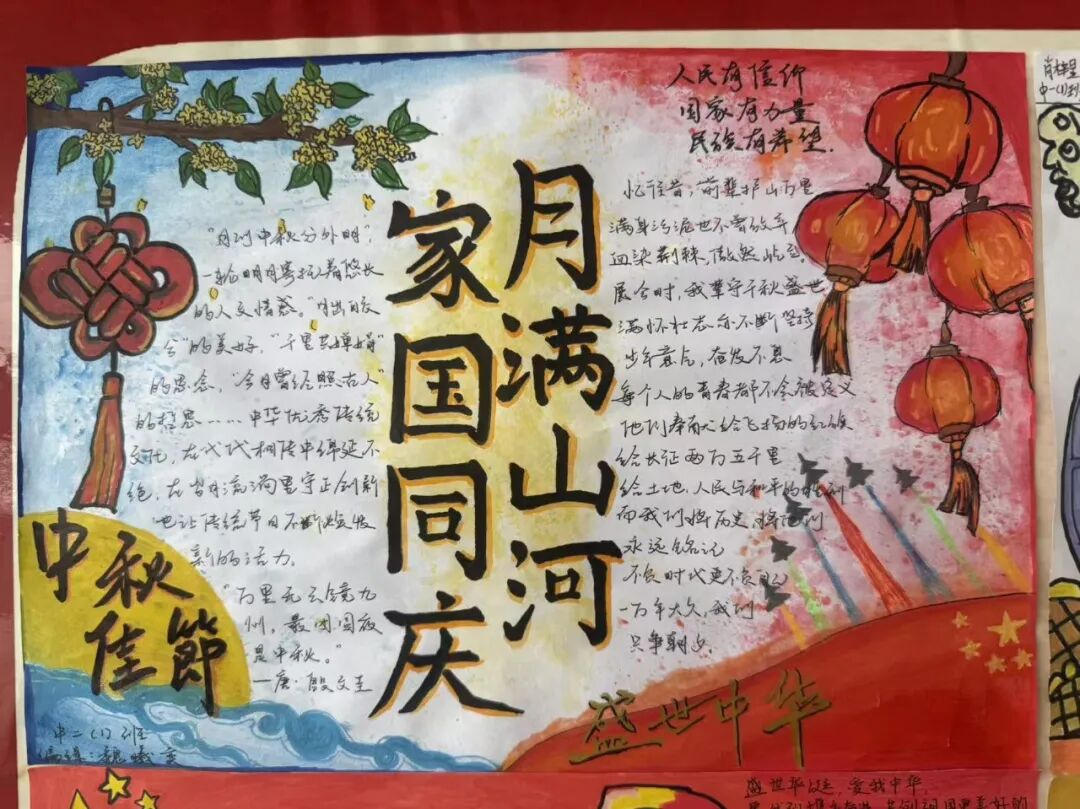 人民有信仰
国家有力量
民族有希望.
月满山河
家国同庆
"月到中秋分外明",
一轮明月寄托着悠长
的人文情感。"月出皎
兮"的美好,"千里共婵娟"
的思念,"今月曾经照古人"
的哲思……中华优秀传统
文化,在代代相传中绵延不
绝,在岁月流淌里守正创新
也让传统节日不断焕发
新的活力。
"万里无云镜九
州,最团圆夜
是中秋。"
—唐·殷文圭
忆往昔,前辈护山万里
满身污泥也不曾放弃
血染荆棘,傲然屹立.
展今时,我辈守千秋盛世
满怀壮志亦不断坚持
少年意气,奋发不息
每个人的青春都不会被定义
他们奉献给飞扬的红旗
给长征两万五千里
给土地、人民与和平的胜利
而我们将历史、将他们
永远铭记
不负时代更不负
一万年太久,我们
只争朝夕.
中秋
佳節
盛世中华
中二(1)班
编辑:魏曦
肖
中一(1)班
盛世华诞,爱我中华,